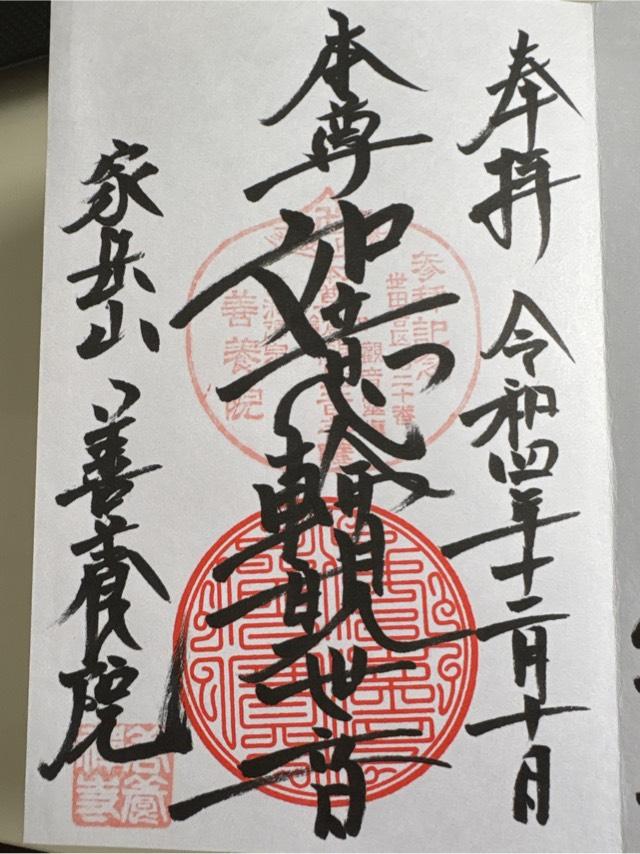 奉拝 令和四年十二月十日
本尊 如意輪観世音
家岳山 善養院
参拝記念
善養院